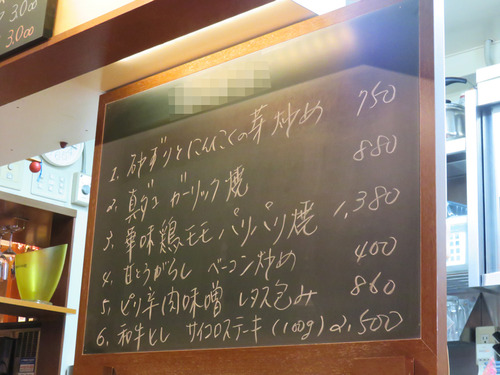 3.000
3.000
1. 砂ずりとにんにくの芽炒め 750
2. 真ダコ ガーリック焼 880
3. 華味鶏モモ パリパリ焼 1,380
4. 甘とうがらし ベーコン炒め 400
5. ピリ辛肉味噌 レタス包み 860
6. 和牛ヒレ サイコロステーキ (100g) 2,500